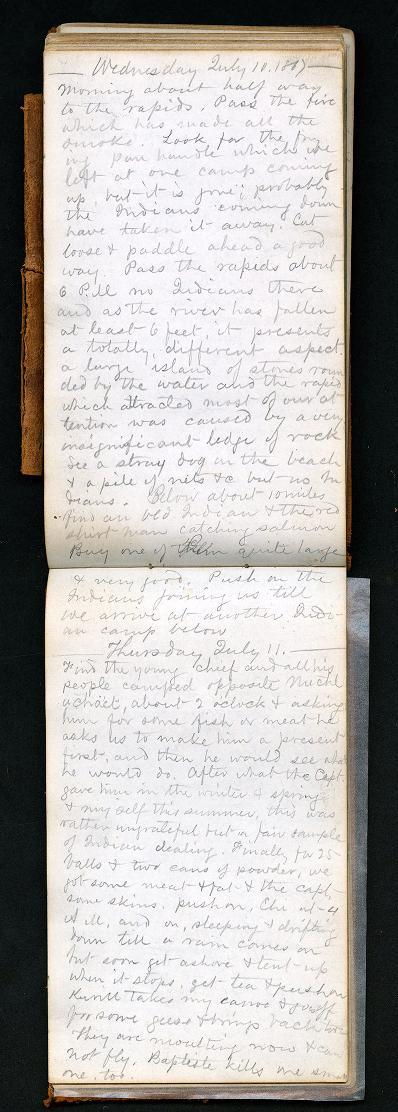 Wednesday July 10. 1867
Morning about half way
to the rapids. Pass the fire
which has made all the
smoke. Look for the fry
ing pan handle which we
left at one camp coming
up, but it is gone; probably
the Indians coming down
have taken it away. Cut
loose & paddle ahead a good
way. Pass the rapids about
6 P.M. no Indians there
and as the river has fallen
at least 6 feet, it presents
a totally different aspect.
a large island of stones roun
ded by the water and the rapid
which attracted most of our at
tention was caused by a very
insignificant ledge of rock
See a stray dog on the beach
& a pile of nets &c but no In
dians. Below about 10 miles
find an old Indian & the red
shirt man catching salmon
Buy one of them quite large
& very good. Push on the
Indians joining us till
we arrive at another Indi-
an camp below
Thursday July 11.
Find the young chief and all his
people camped opposite
about 2 oclock & asking
him for some fish or meat he
asks us to make him a present
first, and then he would see what
he would do. After what the Capt.
gave him in the winter & spring
& myself this summer, this was
rather ungrateful but a fair sample
of Indian dealing. Finally for 25
balls & two cans of powder, we
got some meat & fat & the Capt.
some skins. push on,
ill, and on, sleeping & drifting
down till a rain comes on
but soon get ashore & tent up
when it stops, get tea & push on
Kurill takes my canoe & goes off
for some geese & brings back two
They are moulting now & can
not fly. Baptiste kills one small
one, too.